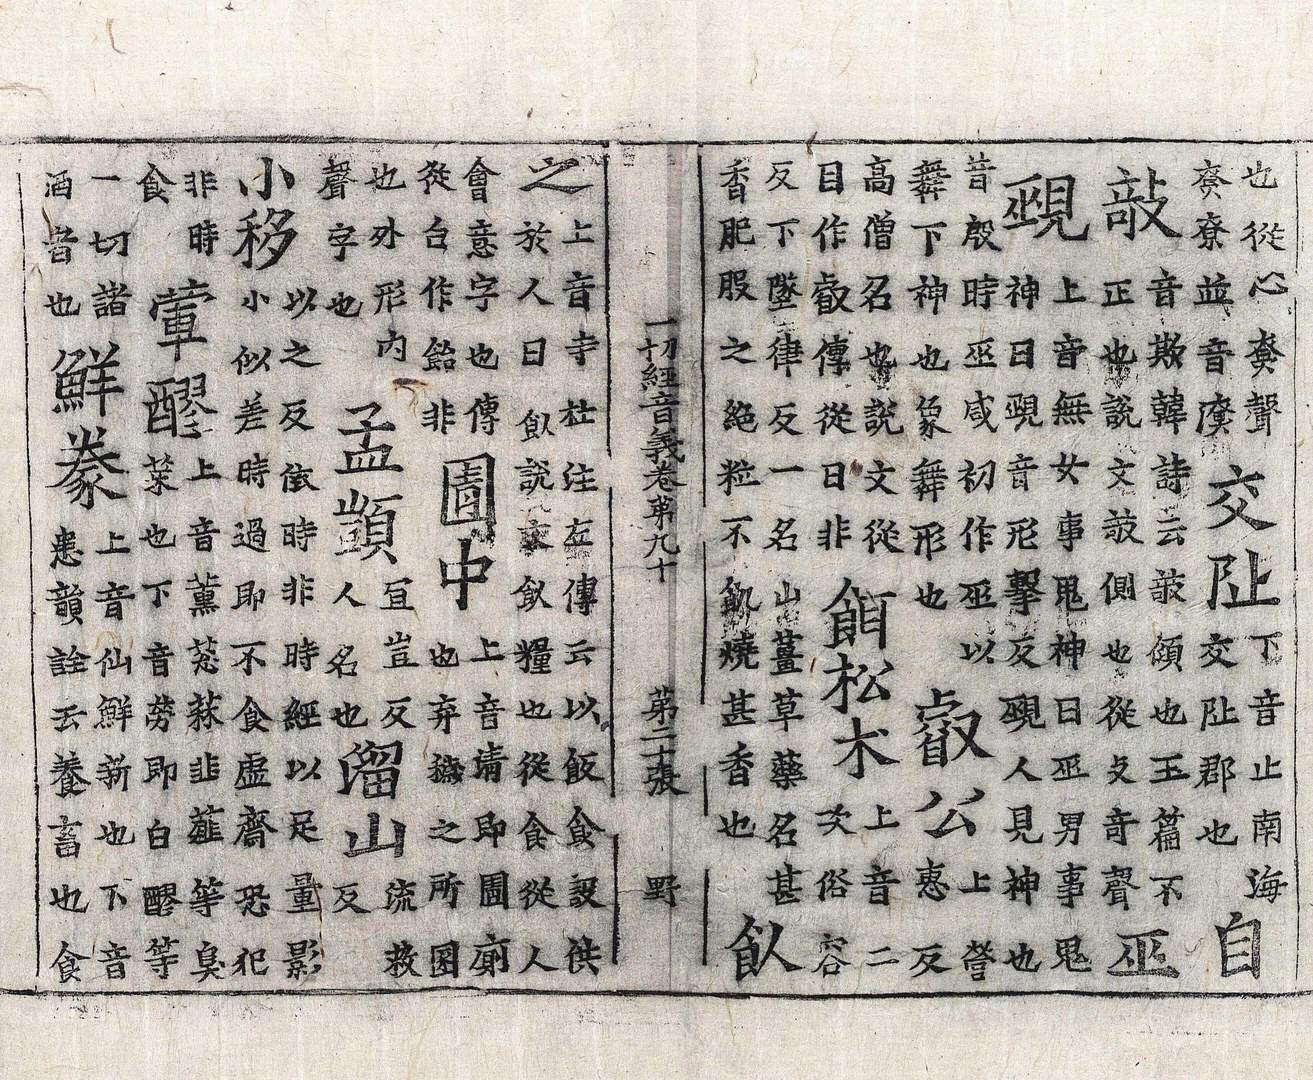 也從心㚇聲㚇寮並音交阯下音止南海交阯郡也自
敧音欺韓詩云敧傾也玉篇不正也說文敧側也從攴奇聲巫
覡上音無女事鬼神曰巫男事鬼神曰覡音形擊反覡人見神也
昔殷時巫咸初作巫以舞下神也象舞形也叡公上營惠反
高僧名也說文從目作叡傳從日非餌松朮上音二次俗容
反下墜律反一名山薑草藥名甚香肥服之絶粒不飢燒甚香也飤
一切經音義卷第九十 第二十張 野
之上音寺杜注左傳云以飯食設供於人曰飤說文飤糧也從食從人
會意字也傳從台作飴非圊中上音清即圊廁也弃穢之所圂
也外形内聲字也孟顗宜豈反人名也溜山流救反
小移以之反依時非時經以足量影小似差時過即不食虛齋恐犯
非時食葷醪上音薰葱蒜韭薤等臭菜也下音勞即白醪等
一切諸酒者也鮮豢上音仙鮮新也下音患韻詮云養畜也食